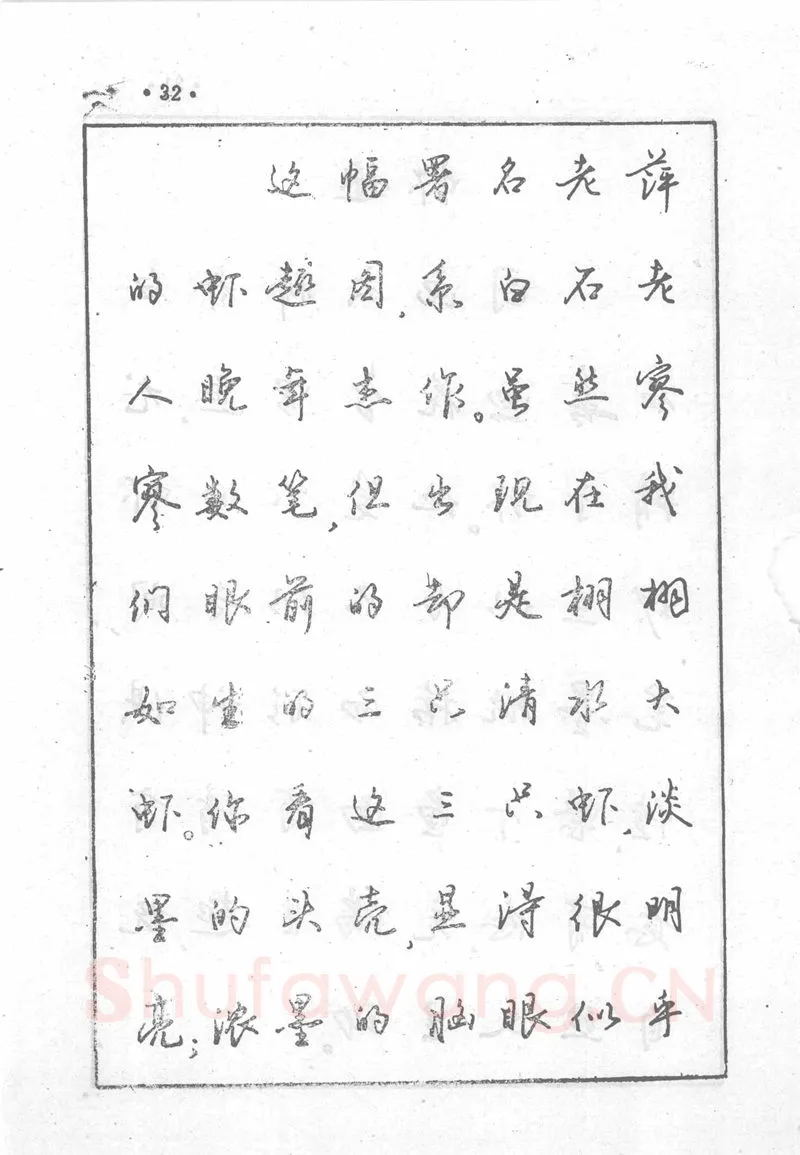 ·32·
这幅署名老萍
的虾趣图，系白石老
人晚年杰作。虽然寥
寥数笔，但出现在我
们眼前的却是栩栩
如生的三只清水大
虾。你看这三只虾，淡
墨的头壳，显得很明
亮；浓墨的脑眼似乎
Shufawang.CN